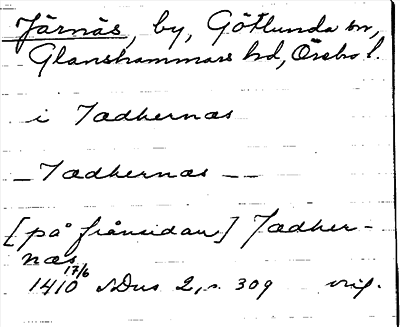 Järnäs, by, Götlunda sn,
Glanshammars hd, Örebro l.
i Jædhernæs
– Jædhernæs – –
[på frånsidan] Jædher-
næs
1410 17/6 SDns 2, s. 309 orig.